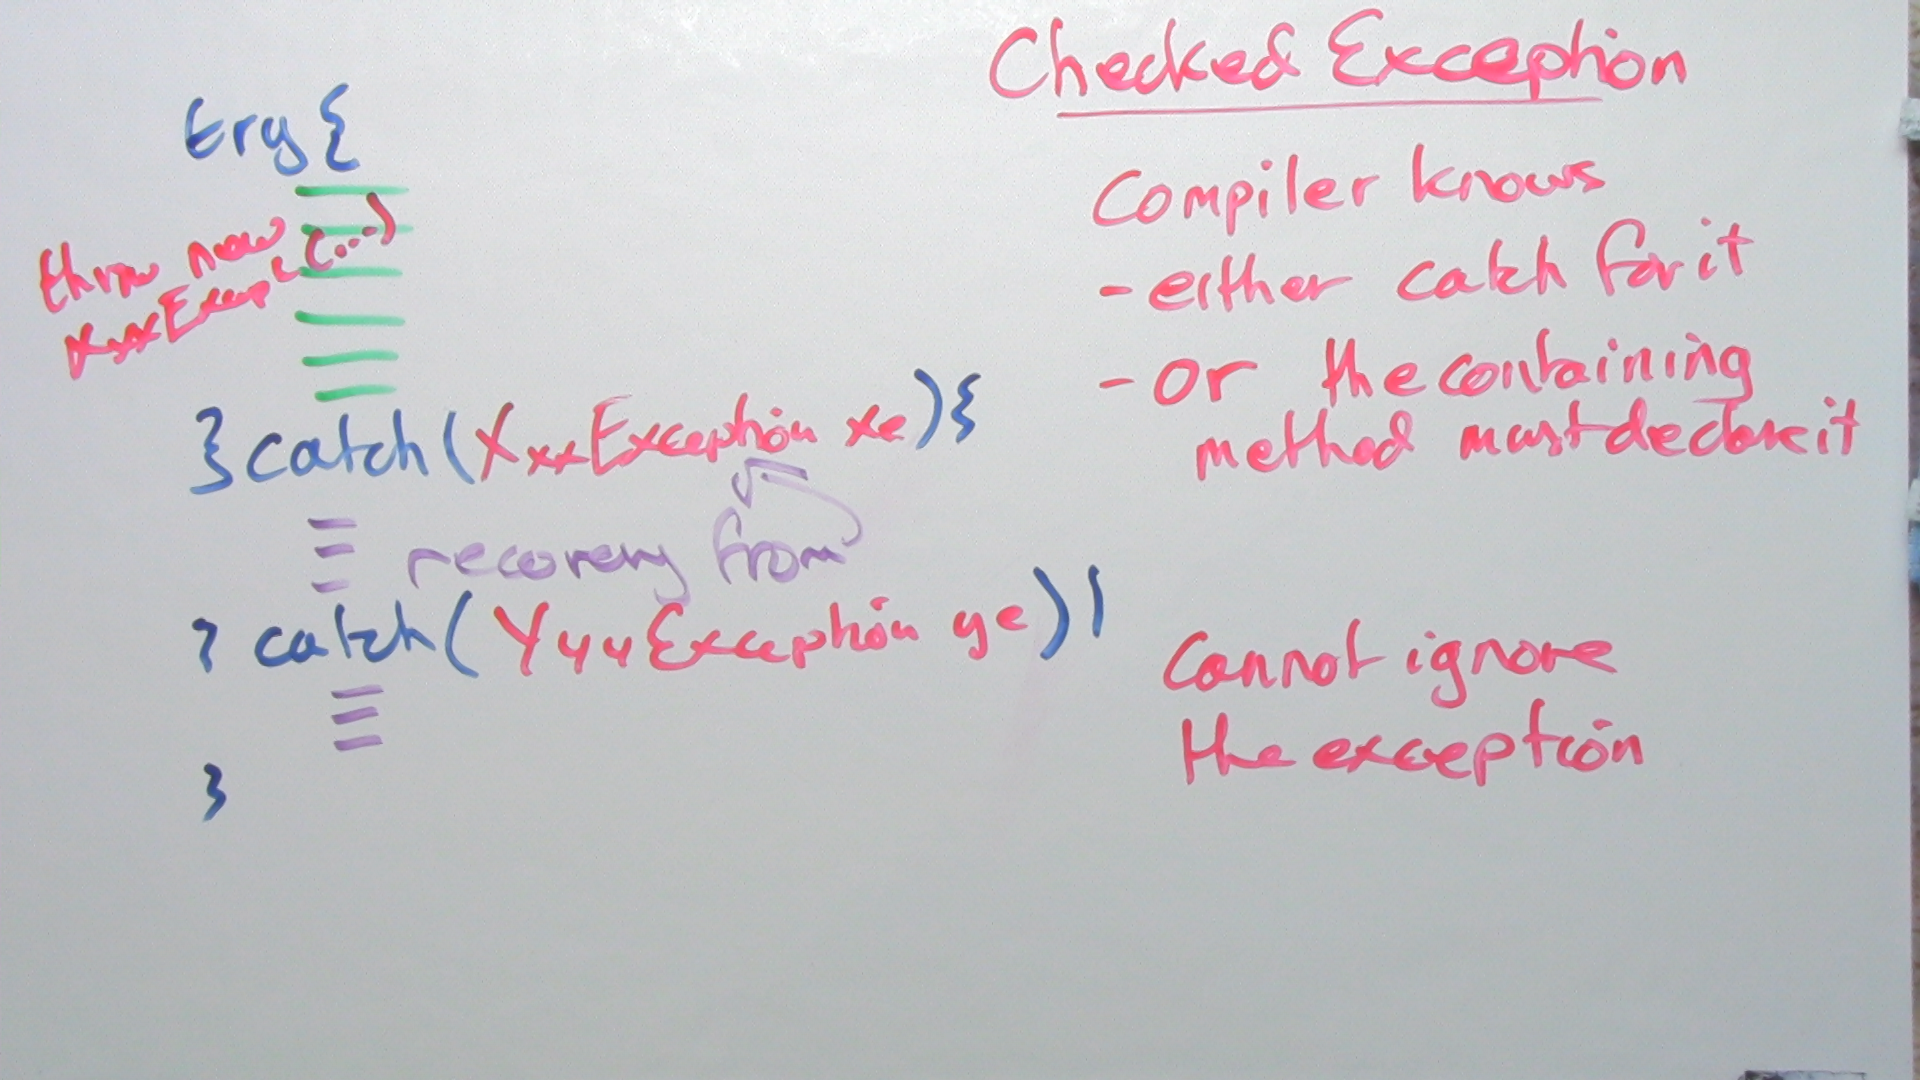 try {
throw new
xxxExcep (...)
} catch (XxxException xe) {
recovery from
} catch (YyyException ye) {
}
Checked Exception
Compiler knows
- either catch for it
- or the containing
method must declare it
Cannot ignore
the exception